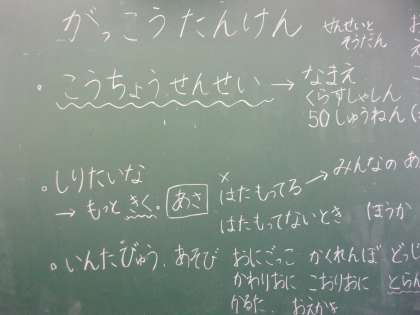 がっこうたんけん
せんせいと
そうだん
・こうちょうせんせい → なまえ
くらすしゃしん
50しゅうねん
・しりたいな
→ もっときく。 あさ
× はたもってる → みんなの あ
はたもってないとき ほうか
・いんたびゅう、あそび おにごっこ かくれんぼ どっじ
かわりおに こおりおに とらん
かるた、おえかき